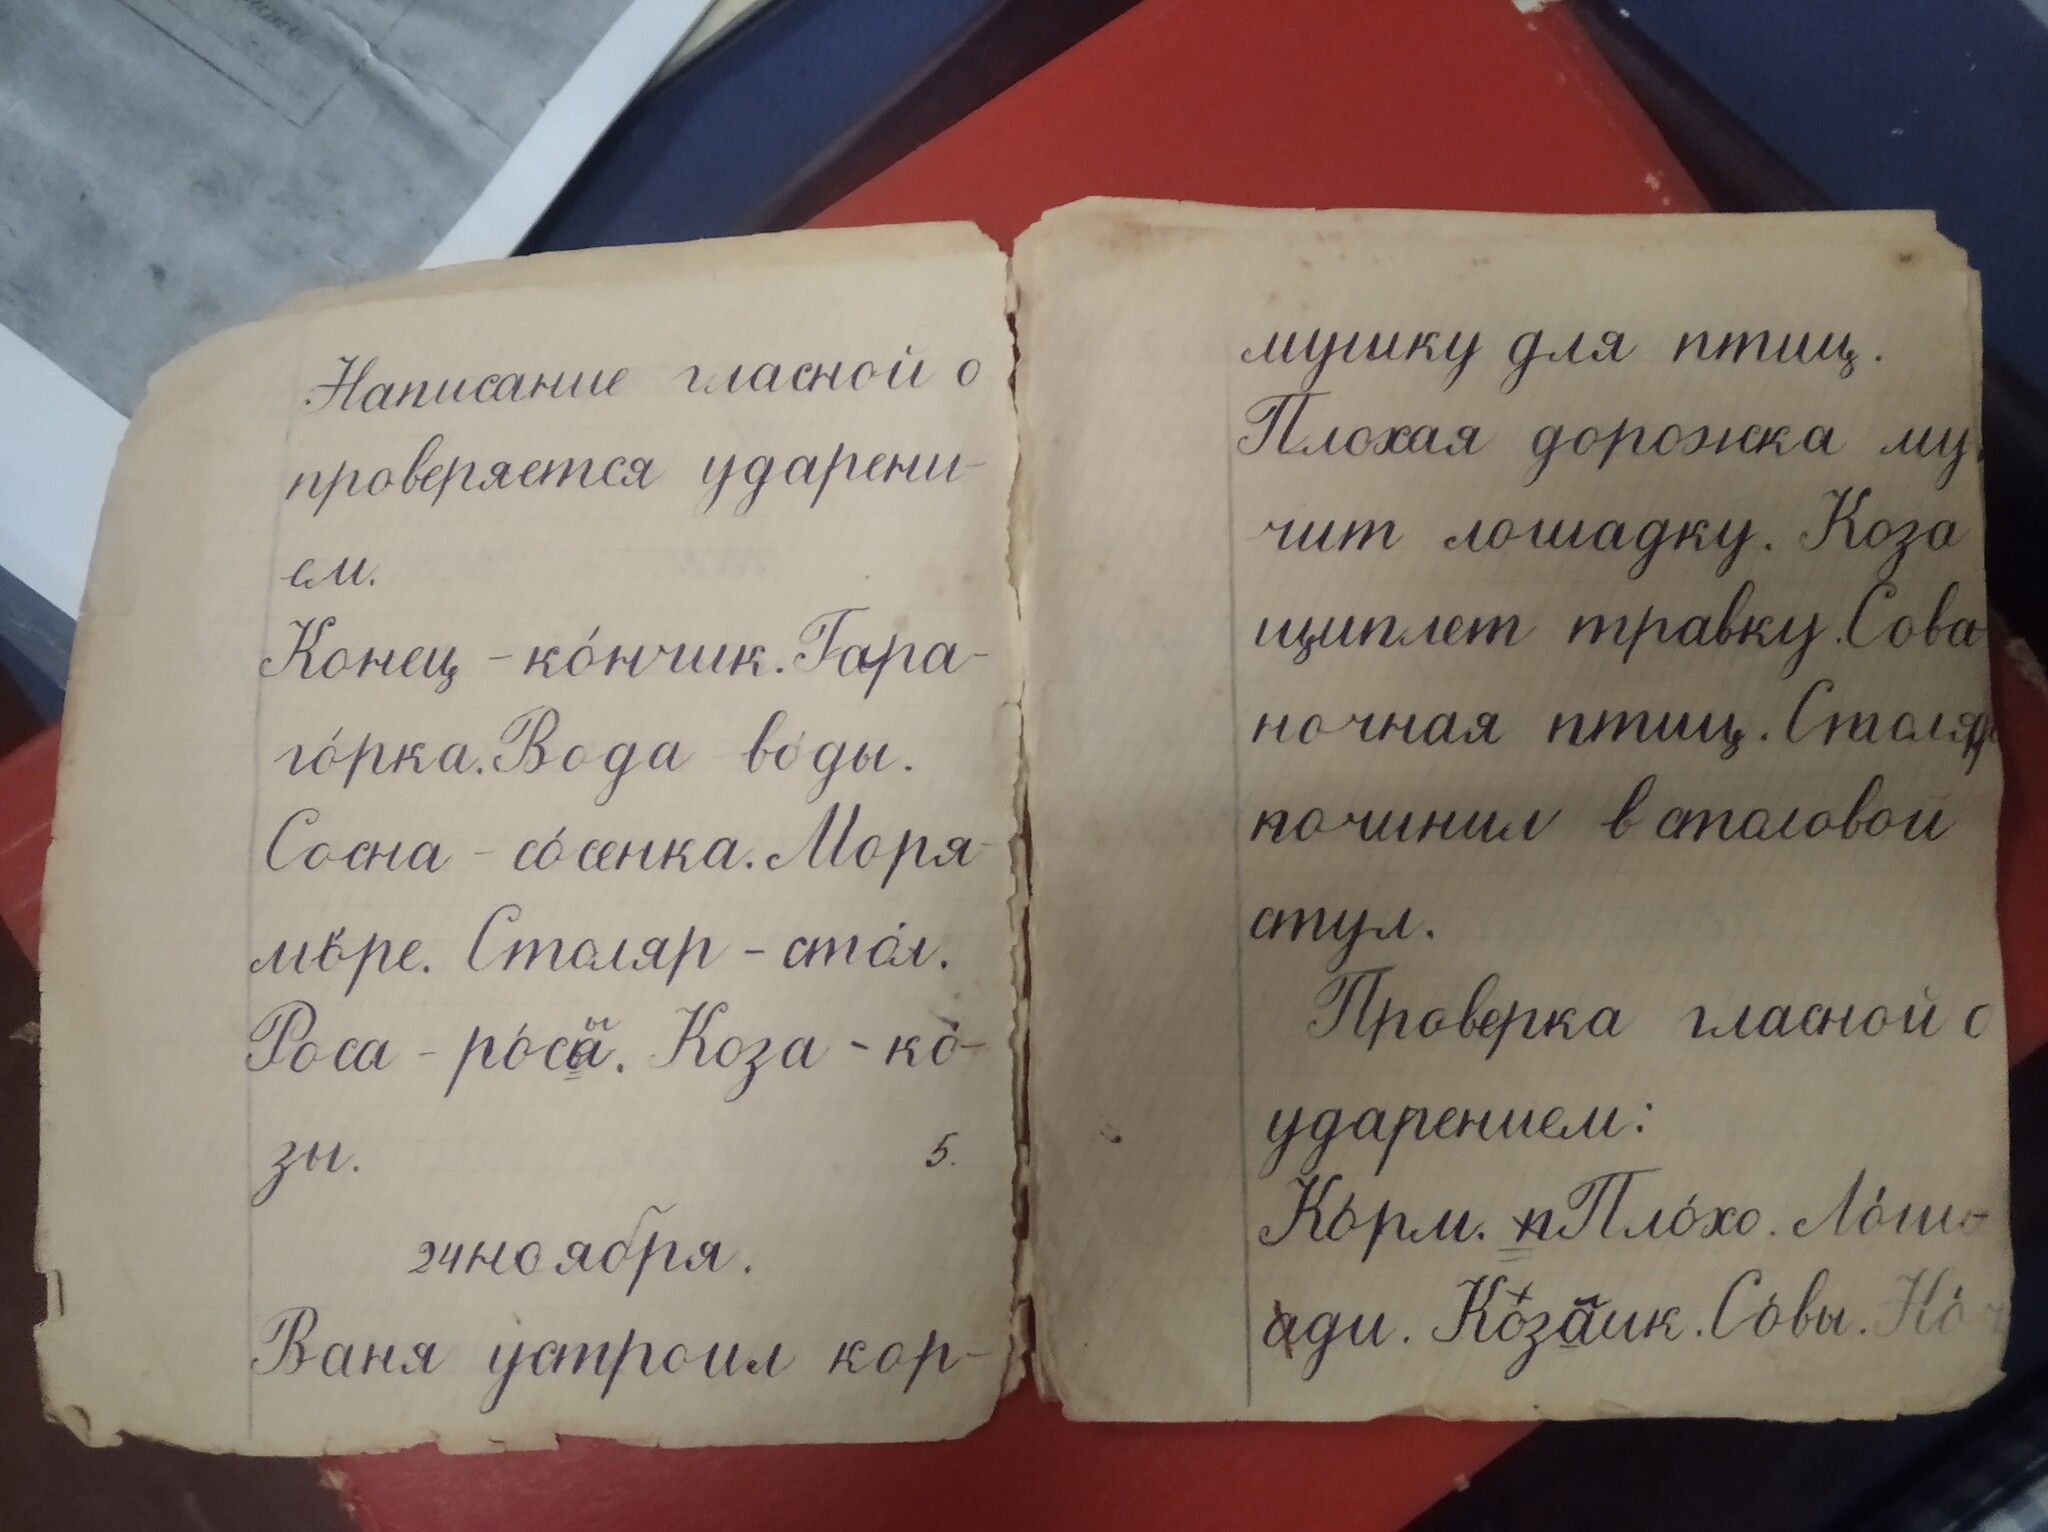 Написание гласной о
проверяется ударени-
ем.
Конец - ко́нчик. Гара-
го́рка. Вода во́ды.
Сосна - со́сенка. Моря-
мо́ре. Столяр - сто́л.
Роса - ро́сы. Коза - ко́-
зы. 5.
24 ноября.
Ваня устроил кор-
мушку для птиц.
Плохая дорожка му-
чит лошадку. Коза
щиплет травку. Сова
ночная птиц. Столяр
починил в столовой
стул.
Проверка гласной о
ударением:
Ко́рм. Пло́хо. Ло́ша-
ди. Ко́зик. Со́вы. Но́ч